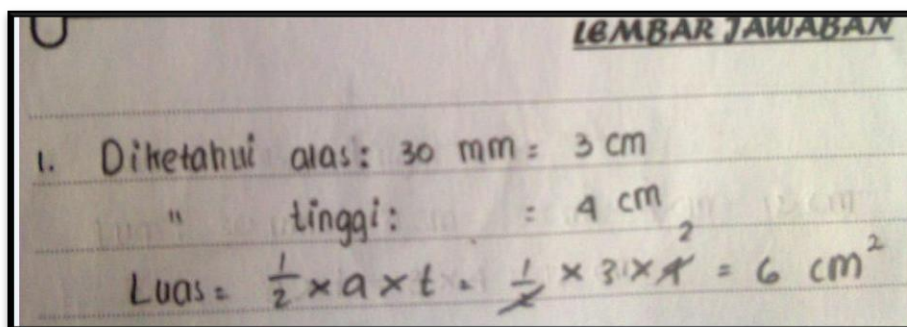 LEMBAR JAWABAN
1. Diketahui alas: 30 mm = 3 cm
" tinggi: = 4 cm
Luas = 1/2 × a × t = 1/2 × 3 × 4 2 = 6 cm²